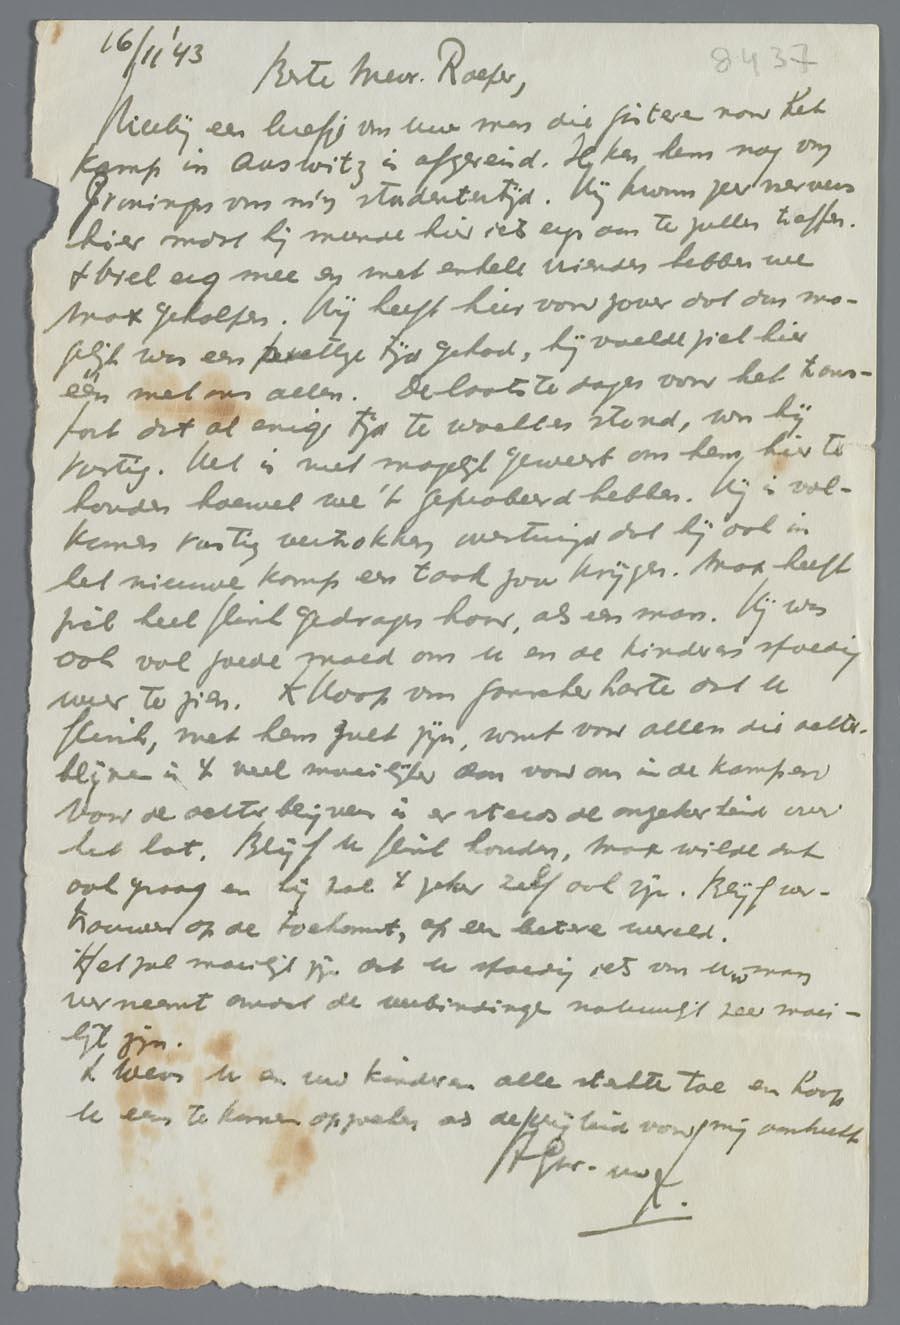 16/11 '43
8437
Beste Mevr. Roeper,
Hierbij een briefje van uw man die gisteren naar het
kamp in Auswitz is afgereisd. Ik ken hem nog van
Groningen van m'n studententijd. Hij kwam zeer nerveus
hier omdat hij meende hier iets ergs aan te zullen treffen.
't Viel erg mee en met enkele vrienden hebben we
Max geholpen. Hij heeft hier voor zover dat dus mo-
gelijk was een prettige tijd gehad, hij voelde zich hier
één met ons allen. De laatste dagen voor het trans-
port dat al enige tijd te wachten stond, was hij
rustig. Het is niet mogelijk geweest om hem hier te
houden hoewel we 't geprobeerd hebben. Hij is vol-
komen rustig vertrokken overtuigd dat hij ook in
het nieuwe kamp een taak zou krijgen. Max heeft
zich heel flink gedragen hoor, als een man. Hij was
ook vol goede moed om u en de kinderen spoedig
weer te zien. Ik hoop van ganscher harte dat u
flink, met hem zult zijn, want voor allen die achter-
blijven is 't veel moeilijker dan voor ons in de kampen.
Voor de achterblijvers is er steeds de onzekerheid over
het lot. Blijf u flink houden, Max wilde dat
ook graag en hij zal 't zeker zelf ook zijn. Blijf ver-
trouwen op de toekomst, op een betere wereld.
Het zal moeilijk zijn dat u spoedig iets van uw man
verneemt omdat de verbindingen natuurlijk zeer moei-
lijk zijn.
Ik wens u en uw kinderen alle sterkte toe en hoop
u eens te komen opzoeken als de vrijheid voor mij aanbreekt